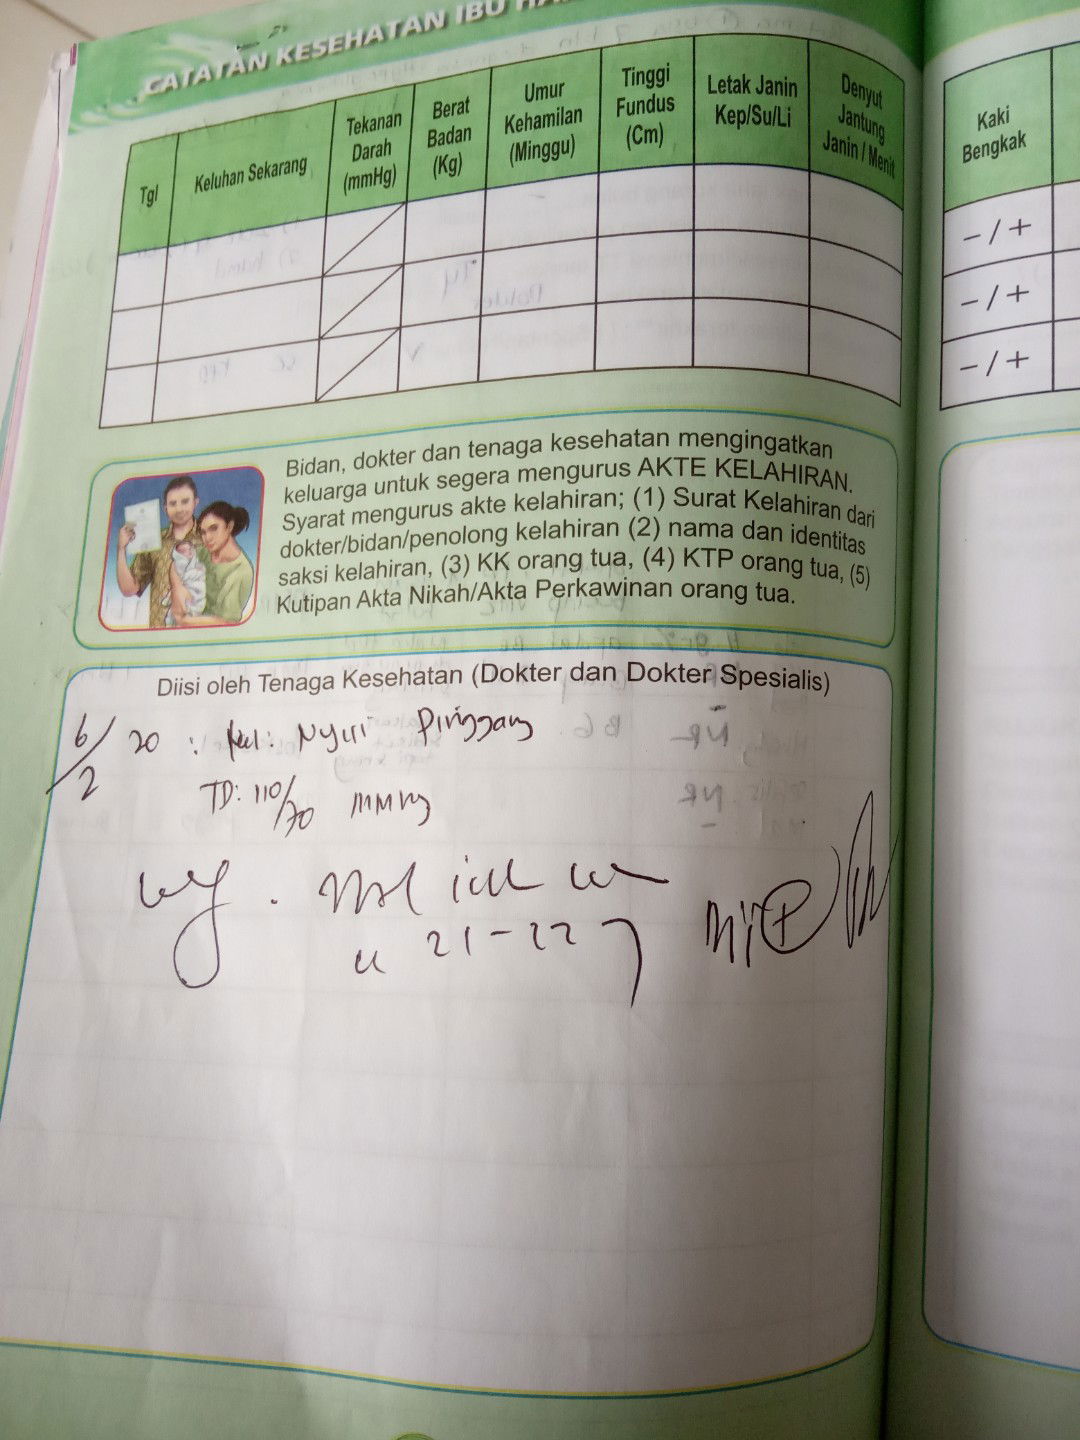 CATATAN KESEHATAN IBU
Tgl
Keluhan Sekarang
Tekanan
Darah
(mmHg)
Berat
Badan
(Kg)
Umur
Kehamilan
(Minggu)
Tinggi
Fundus
(Cm)
Letak Janin
Kep/Su/Li
Denyut
Jantung
Janin / Menit
Kaki
Bengkak
- / +
- / +
- / +
Bidan, dokter dan tenaga kesehatan mengingatkan
keluarga untuk segera mengurus AKTE KELAHIRAN.
Syarat mengurus akte kelahiran; (1) Surat Kelahiran dari
dokter/bidan/penolong kelahiran (2) nama dan identitas
saksi kelahiran, (3) KK orang tua, (4) KTP orang tua, (5)
Kutipan Akta Nikah/Akta Perkawinan orang tua.
Diisi oleh Tenaga Kesehatan (Dokter dan Dokter Spesialis)
6/2 20 : Kel: Nyeri Pinggang
TD: 110/70 mmHg
21-22